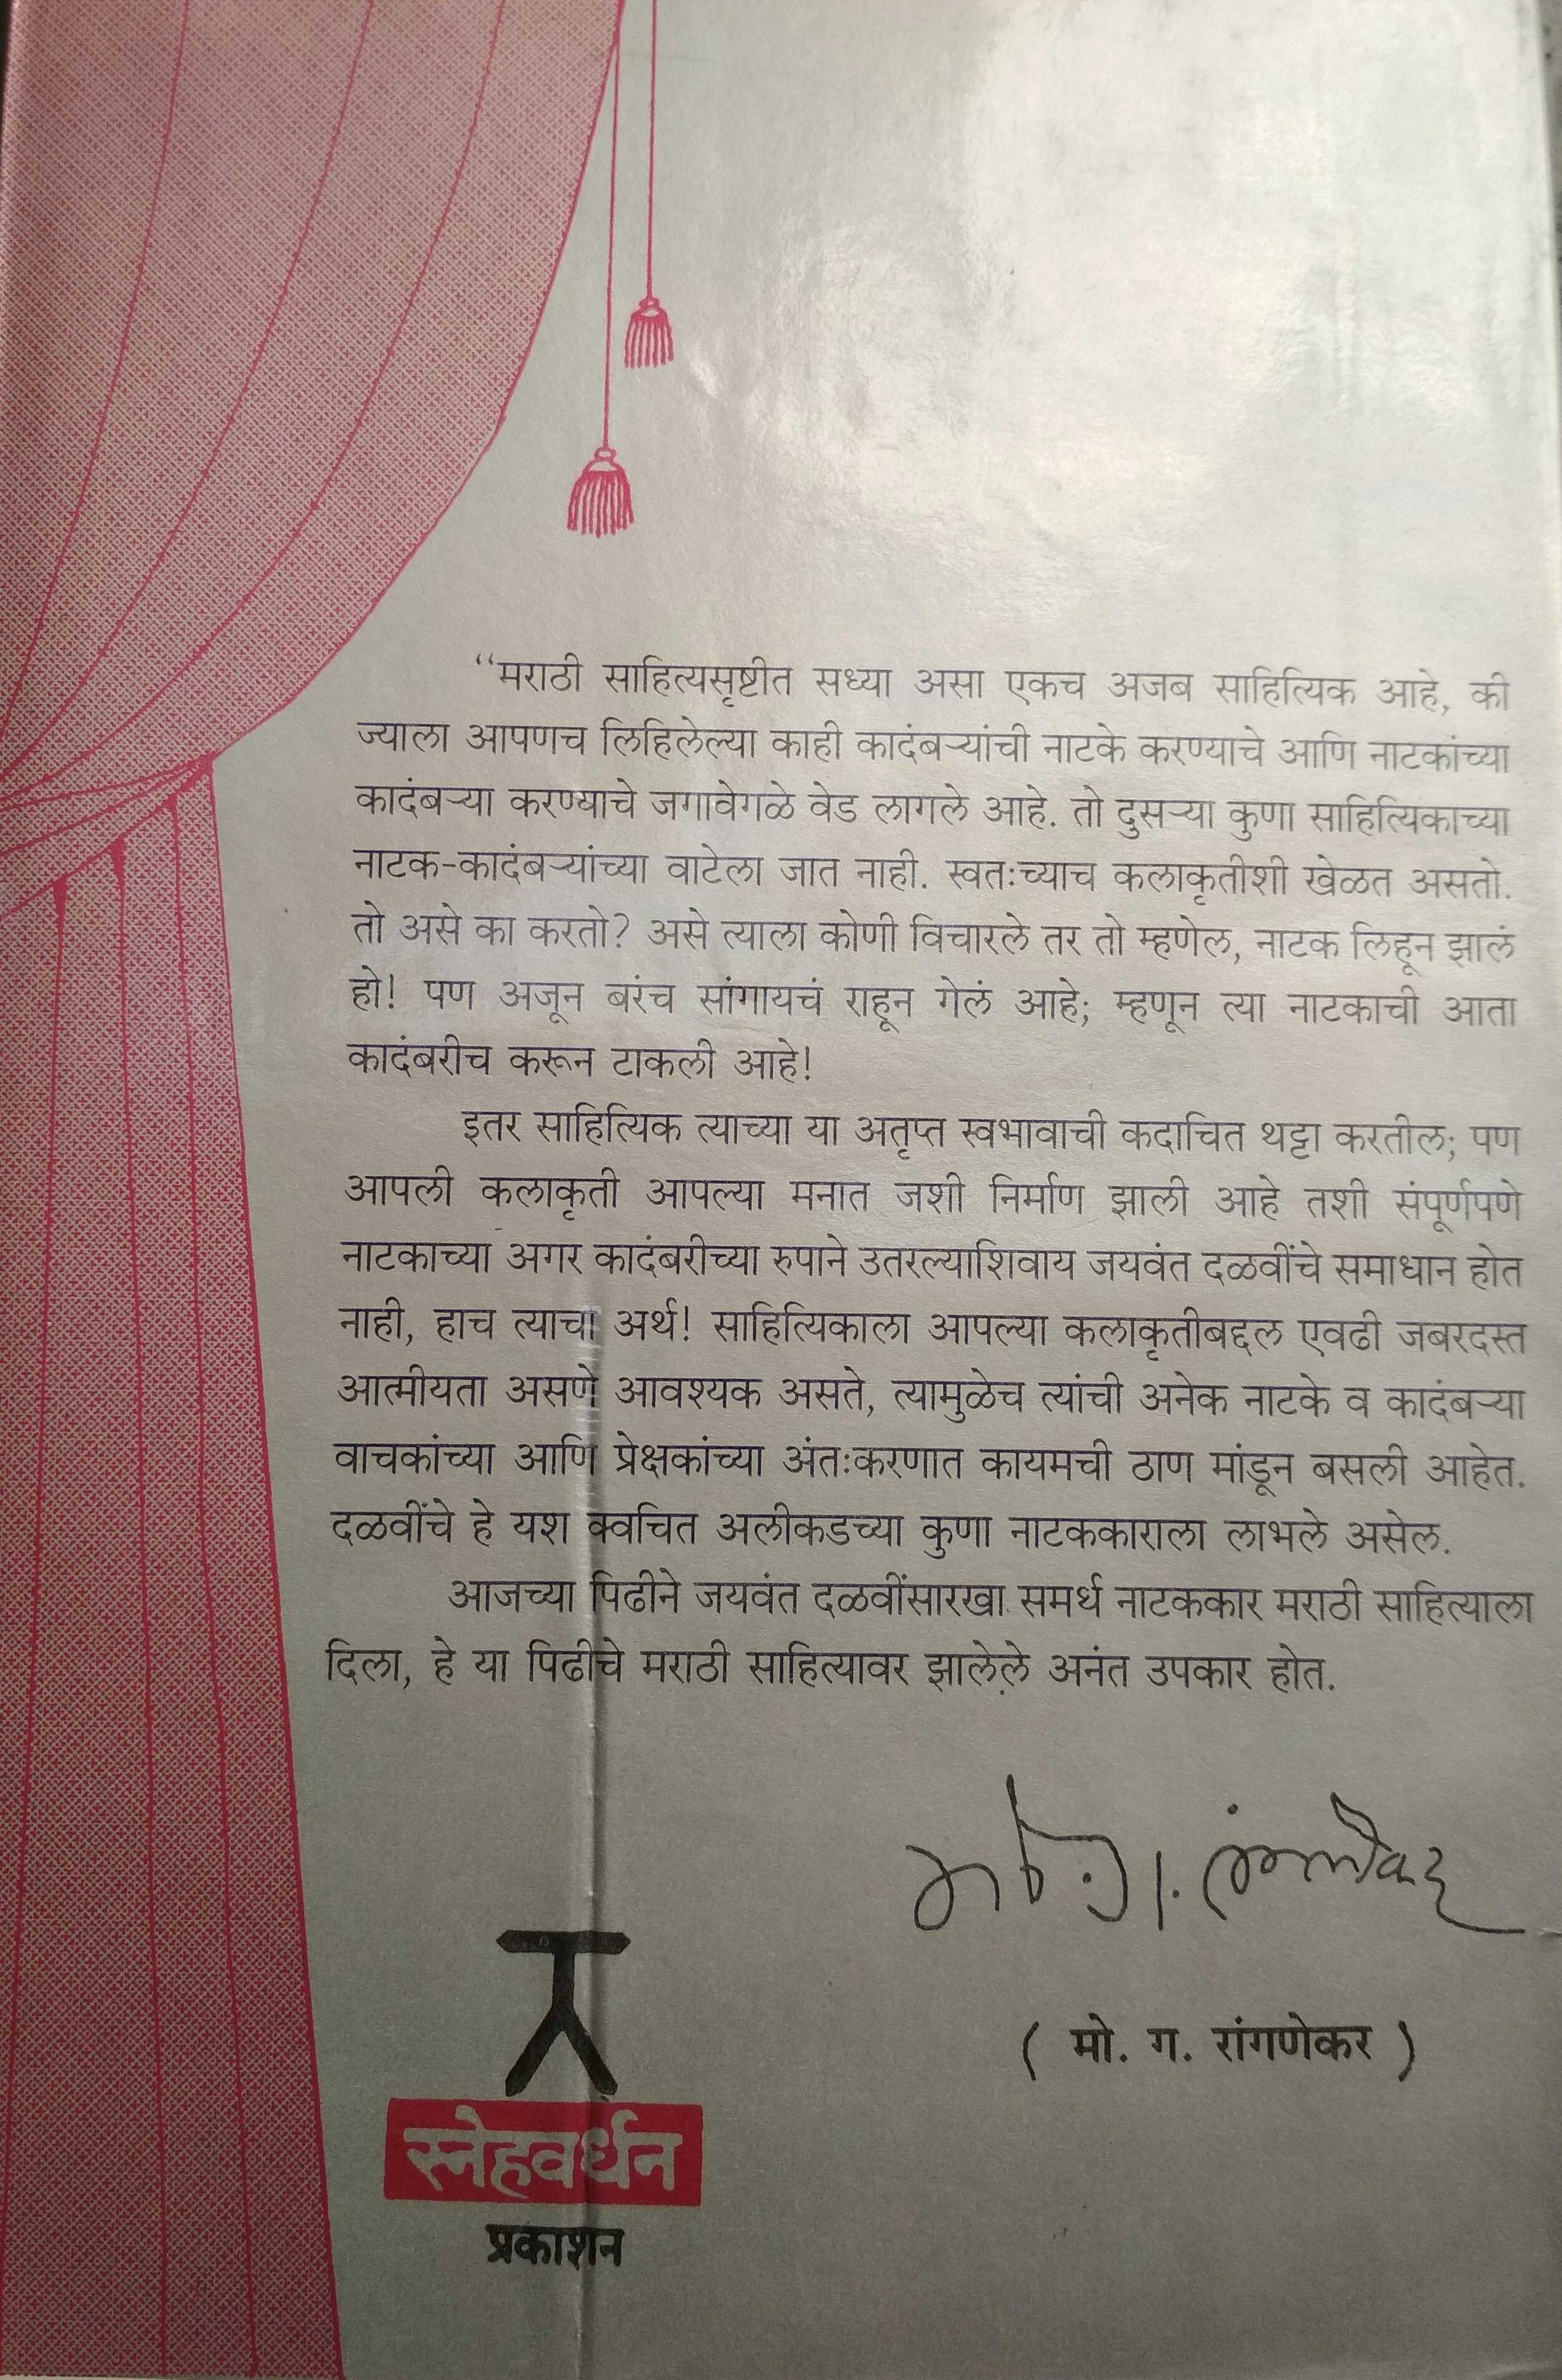 “मराठी साहित्यसृष्टीत सध्या असा एकच अजब साहित्यिक आहे, की
ज्याला आपणच लिहिलेल्या काही कादंबऱ्यांची नाटके करण्याचे आणि नाटकांच्या
कादंबऱ्या करण्याचे जगावेगळे वेड लागले आहे. तो दुसऱ्या कुणा साहित्यिकाच्या
नाटक-कादंबऱ्यांच्या वाटेला जात नाही. स्वतःच्याच कलाकृतीशी खेळत असतो.
तो असे का करतो? असे त्याला कोणी विचारले तर तो म्हणेल, नाटक लिहून झालं
हो! पण अजून बरंच सांगायचं राहून गेलं आहे; म्हणून त्या नाटकाची आता
कादंबरीच करून टाकली आहे!
इतर साहित्यिक त्याच्या या अतृप्त स्वभावाची कदाचित थट्टा करतील; पण
आपली कलाकृती आपल्या मनात जशी निर्माण झाली आहे तशी संपूर्णपणे
नाटकाच्या अगर कादंबरीच्या रुपाने उतरल्याशिवाय जयवंत दळवींचे समाधान होत
नाही, हाच त्याचा अर्थ! साहित्यिकाला आपल्या कलाकृतीबद्दल एवढी जबरदस्त
आत्मीयता असणे आवश्यक असते, त्यामुळेच त्यांची अनेक नाटके व कादंबऱ्या
वाचकांच्या आणि प्रेक्षकांच्या अंतःकरणात कायमची ठाण मांडून बसली आहेत.
दळवींचे हे यश क्वचित अलीकडच्या कुणा नाटककाराला लाभले असेल.
आजच्या पिढीने जयवंत दळवींसारखा समर्थ नाटककार मराठी साहित्याला
दिला, हे या पिढीचे मराठी साहित्यावर झालेले अनंत उपकार होत.
मो. ग. रांगणेकर
( मो. ग. रांगणेकर )
स्नेहवर्धन
प्रकाशन